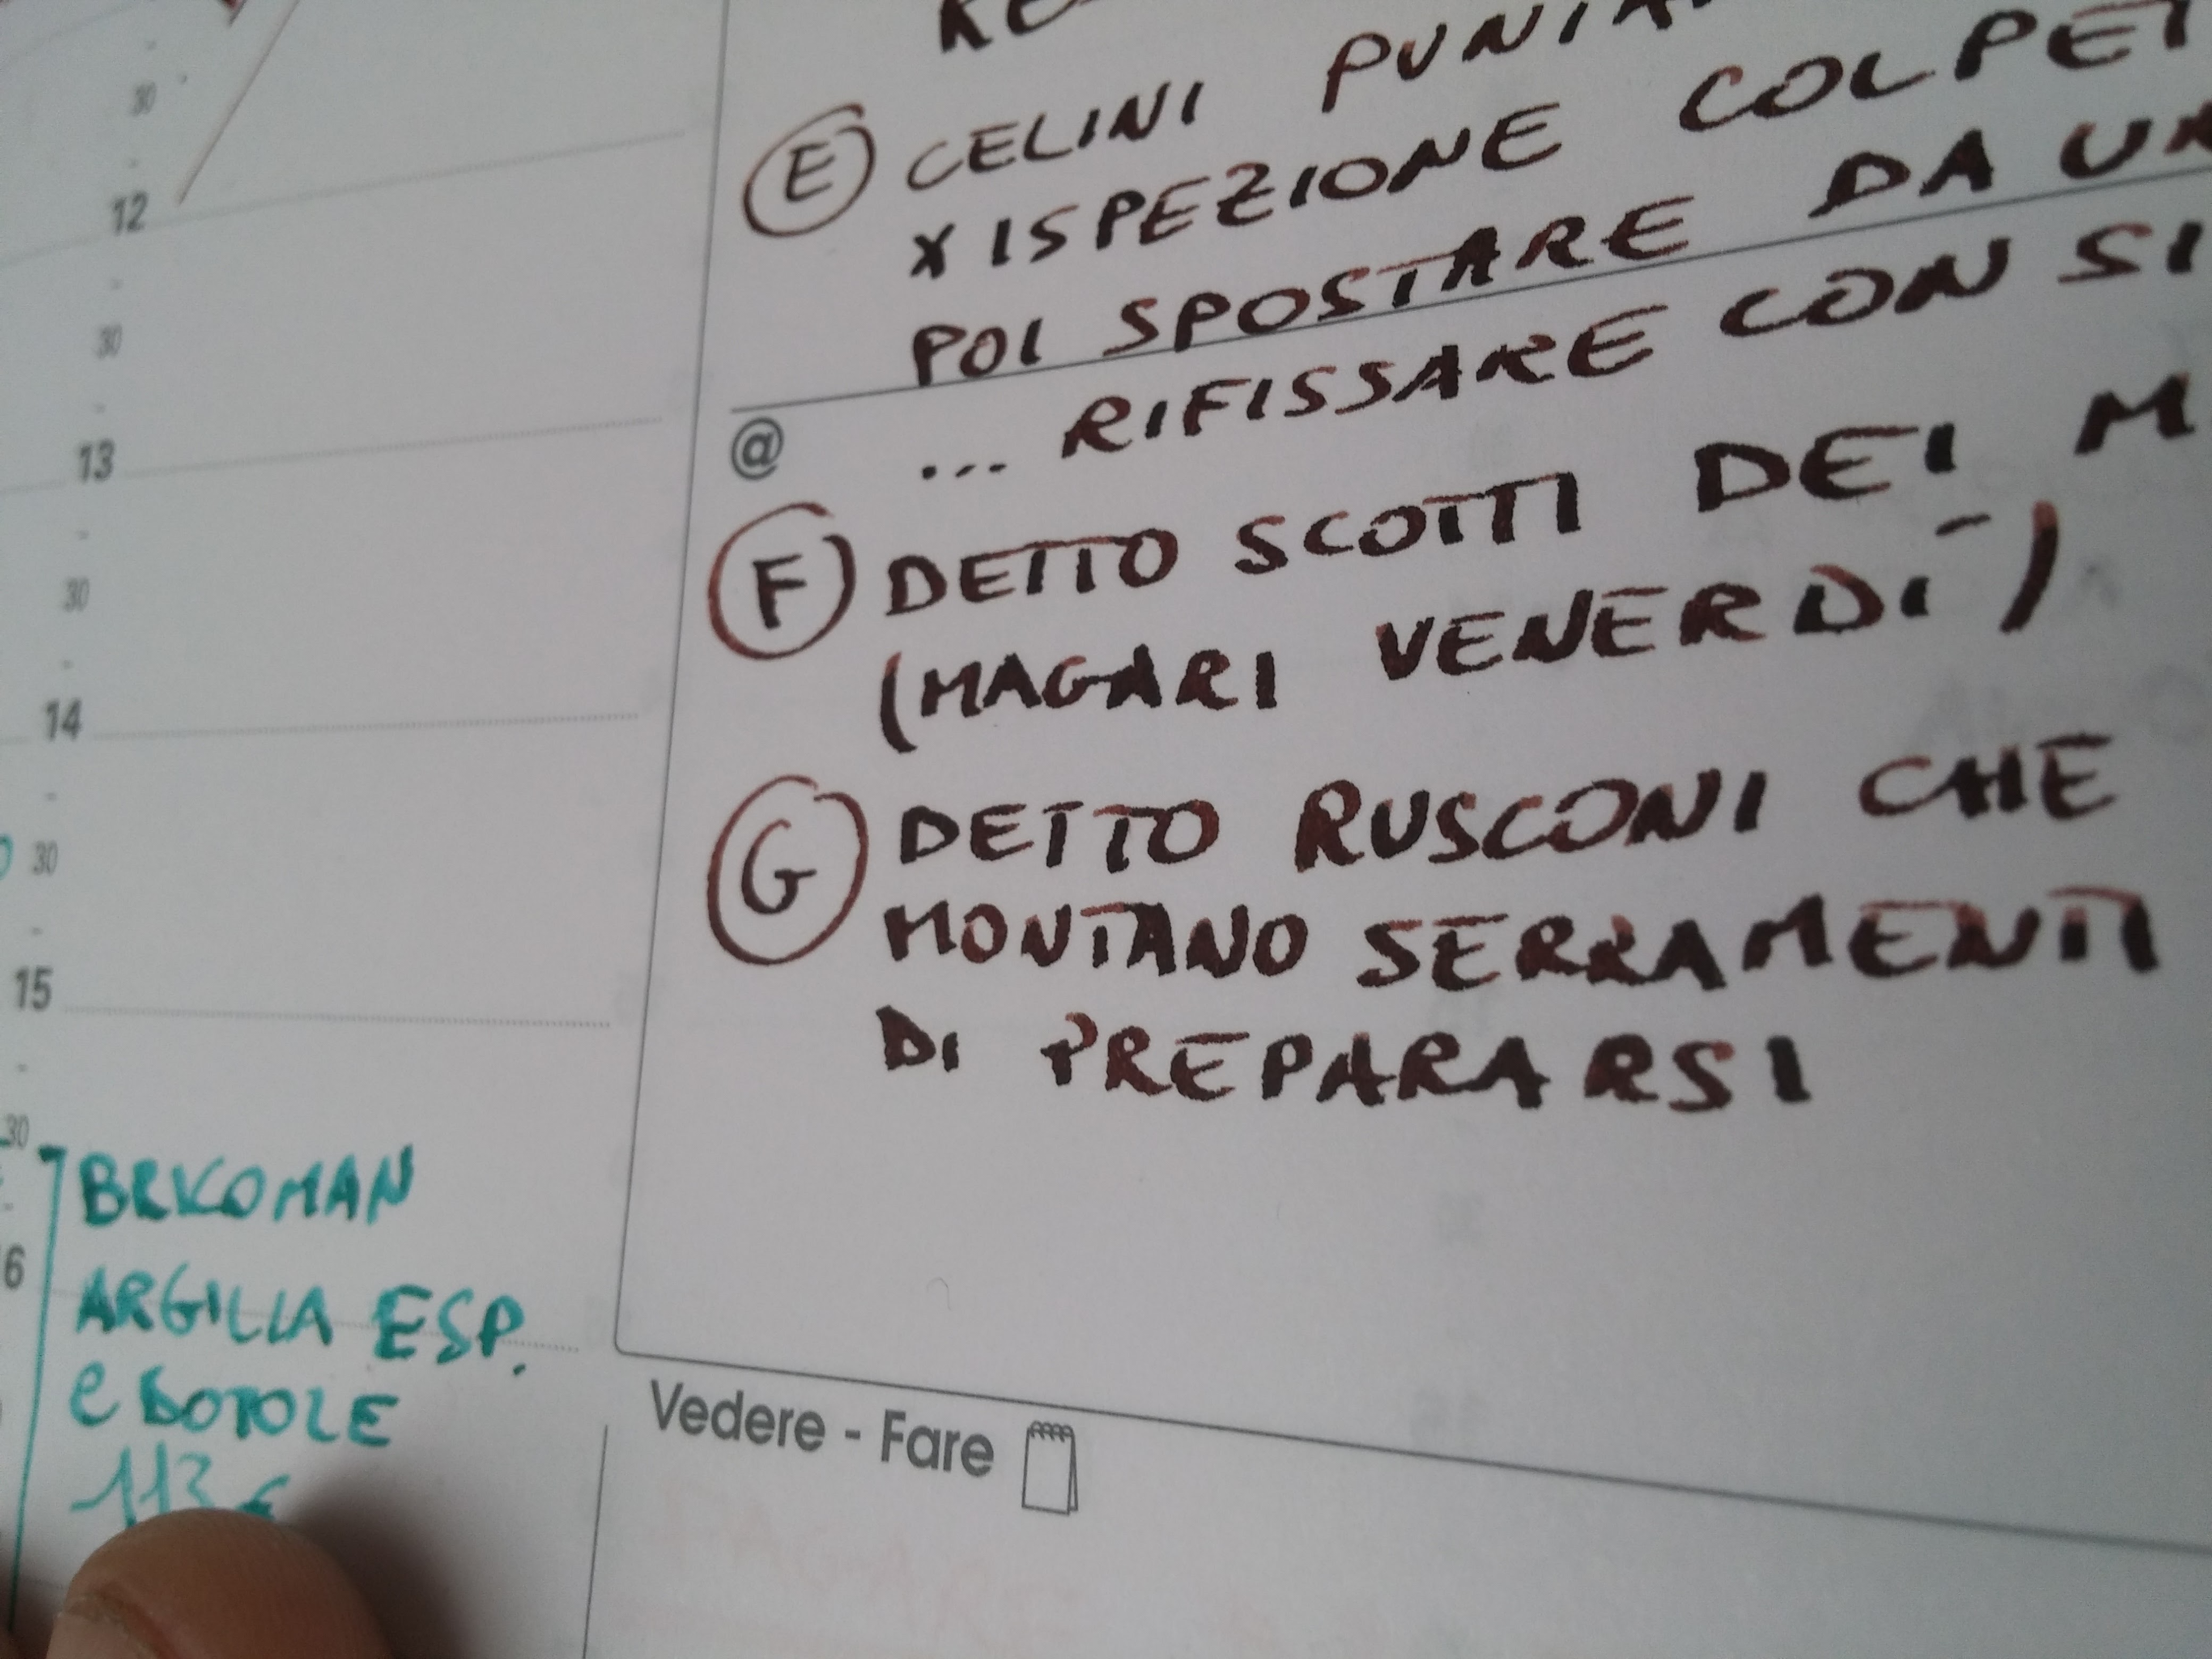 30
12
30
13
30
14
30
15
30
BRICOMAN
ARGILLA ESP.
e BOTOLE
113 €
E CELINI
X ISPEZIONE
POI SPOSTARE DA
@ ... RIFISSARE CON
F DETTO SCOTTI DEI
(MAGARI VENERDÍ)
G DETTO RUSCONI CHE
MONTANO SERRAMENTI
DI PREPARARSI
Vedere - Fare